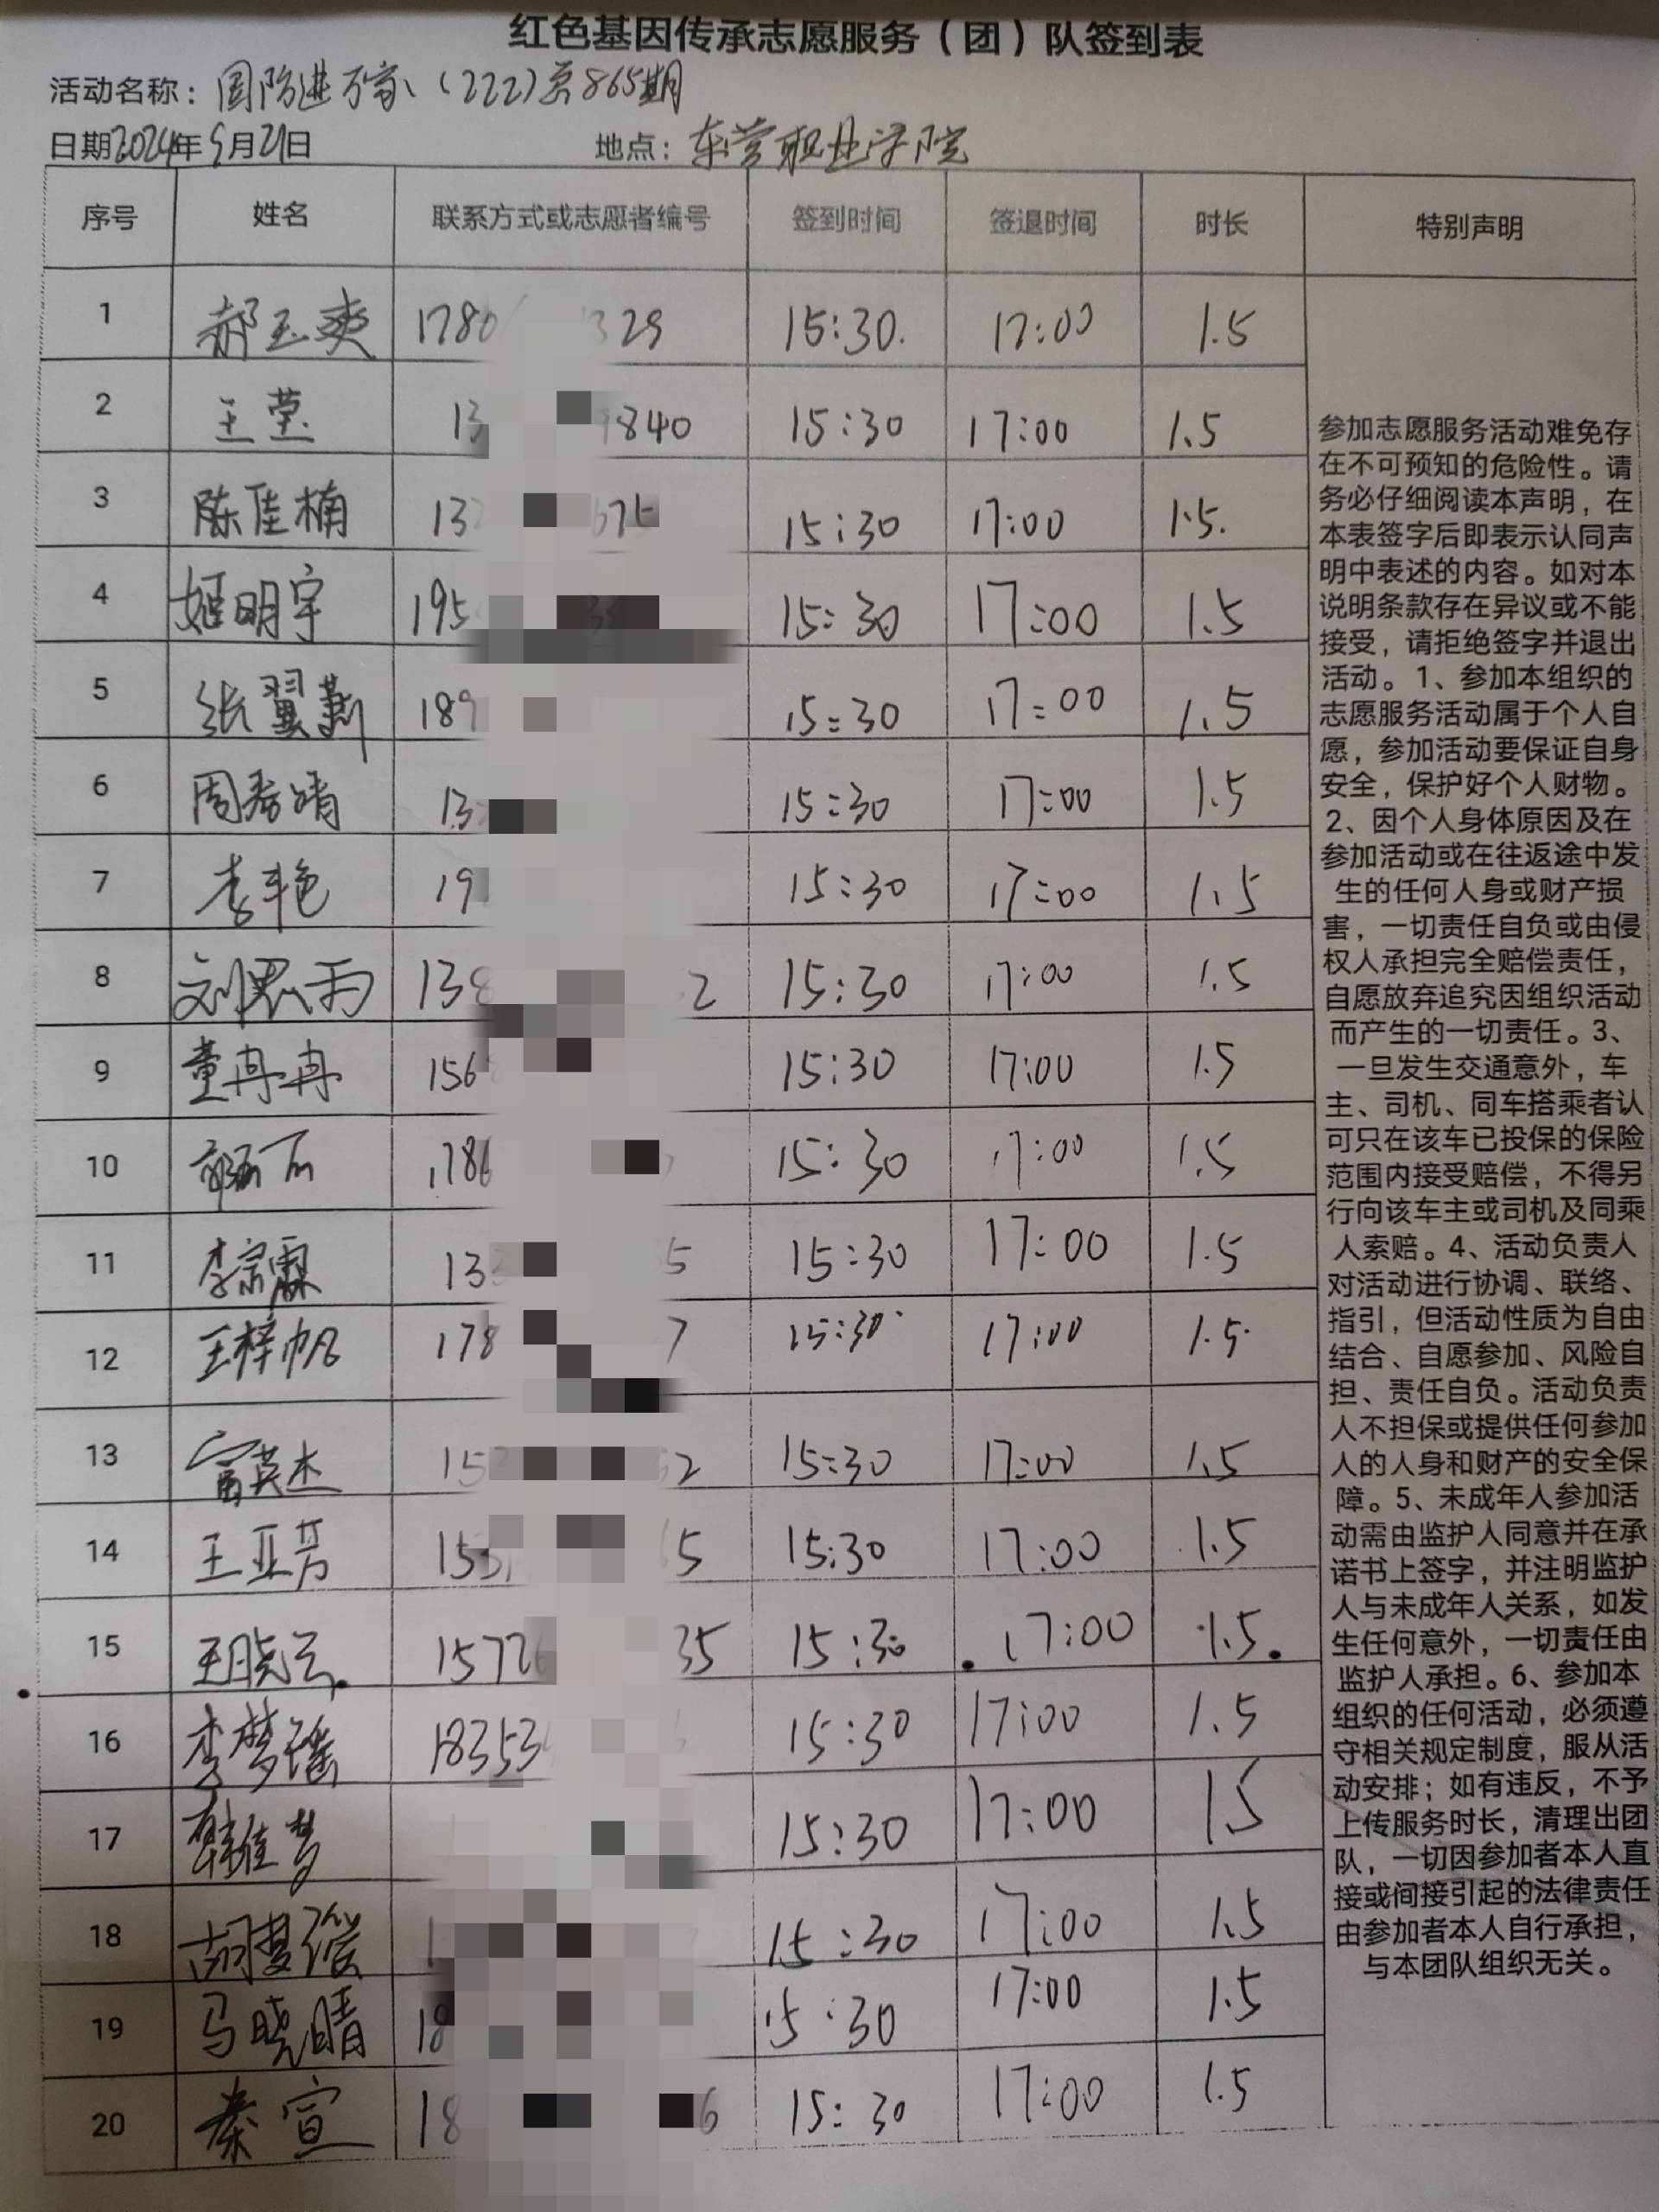 红色基因传承志愿服务（团）队签到表
活动名称：国防进万家（222）第865期
日期2024年5月21日 地点：东营职业学院
序号 姓名 联系方式或志愿者编号 签到时间 签退时间 时长 特别声明
1 郝玉爽 1780 329 15:30. 17:00 1.5
2 王莹 13 9840 15:30 17:00 1.5
3 陈佳楠 13 675 15:30 17:00 1.5.
4 姬明宇 195 15:30 17:00 1.5
5 张翼 189 15:30 17:00 1.5
6 周春晴 13 15:30 17:00 1.5
7 李艳 19 15:30 17:00 1.5
8 刘思雨 138 2 15:30 17:00 1.5
9 董冉冉 156 15:30 17:00 1.5
10 1786 15:30 17:00 1.5
11 李宗霖 13 5 15:30 17:00 1.5
12 王梓帆 178 7 15:30 17:00 1.5
13 富英杰 15 2 15:30 17:00 1.5
14 王亚芳 153 65 15:30 17:00 1.5
15 王晓云 15726 35 15:30 17:00 1.5
16 李梦瑶 18353 15:30 17:00 1.5
17 韩佳梦 15:30 17:00 1.5
18 胡梦瑶 1 15:30 17:00 1.5
19 马晓晴 18 15:30 17:00 1.5
20 秦宣 18 6 15:30 17:00 1.5
参加志愿服务活动难免存
在不可预知的危险性。请
务必仔细阅读本声明，在
本表签字后即表示认同声
明中表述的内容。如对本
说明条款存在异议或不能
接受，请拒绝签字并退出
活动。1、参加本组织的
志愿服务活动属于个人自
愿，参加活动要保证自身
安全，保护好个人财物。
2、因个人身体原因及在
参加活动或在往返途中发
生的任何人身或财产损
害，一切责任自负或由侵
权人承担完全赔偿责任，
自愿放弃追究因组织活动
而产生的一切责任。3、
一旦发生交通意外，车
主、司机、同车搭乘者认
可只在该车已投保的保险
范围内接受赔偿，不得另
行向该车主或司机及同乘
人索赔。4、活动负责人
对活动进行协调、联络、
指引，但活动性质为自由
结合、自愿参加、风险自
担、责任自负。活动负责
人不担保或提供任何参加
人的人身和财产的安全保
障。5、未成年人参加活
动需由监护人同意并在承
诺书上签字，并注明监护
人与未成年人关系，如发
生任何意外，一切责任由
监护人承担。6、参加本
组织的任何活动，必须遵
守相关规定制度，服从活
动安排；如有违反，不予
上传服务时长，清理出团
队，一切因参加者本人直
接或间接引起的法律责任
由参加者本人自行承担，
与本团队组织无关。